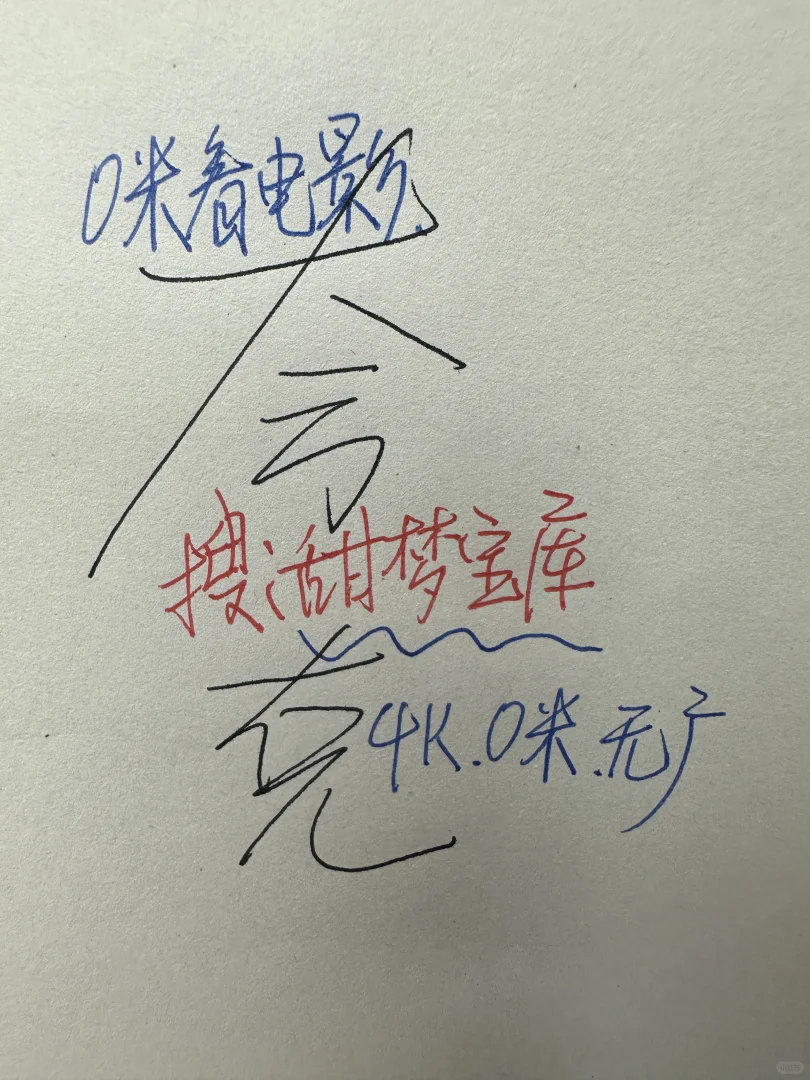 0米看电影
夸
搜:甜梦宝库
克
4K.0米.无广